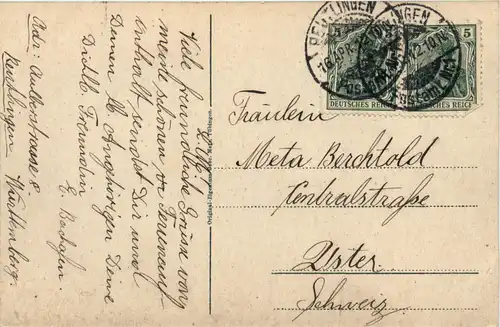 L. M!
Viele freundliche Grüsse von
meine schönen Ferienauf
enthalt sendet Dir und
Deinen lb Angehörigen Deine
Dichlb. Freundin
Adr:
Reutlingen Württemberg.
REUTLINGEN
5
DEUTSCHES REICH
DEUTSCHES REICH
Fräulein
Meta Berchtold
Centralstraße
Uster
Schweiz